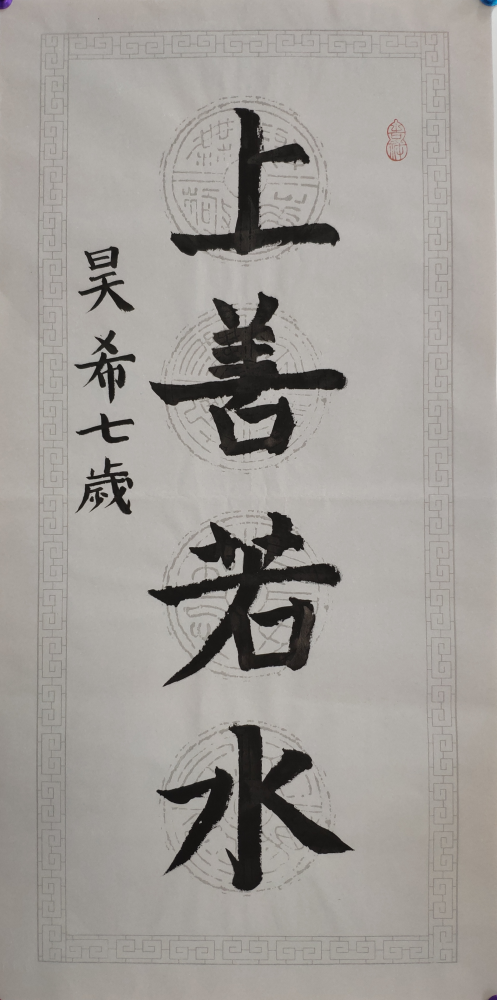 上善若水
昊希七歲